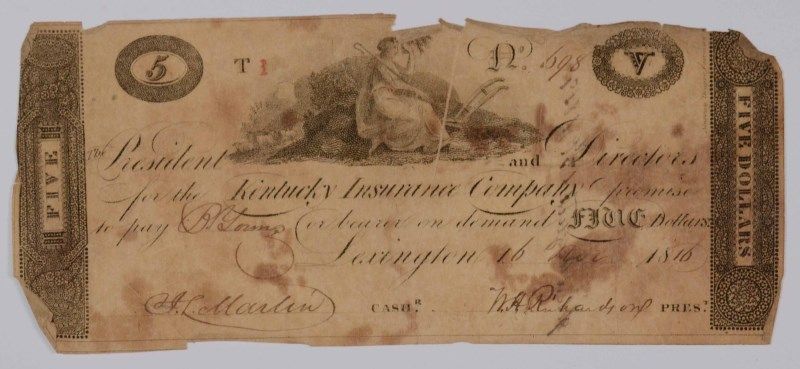 5 T 1 No. 698 V
The President and Directors
for the Kentucky Insurance Company promise
to pay or bearer on demand FIVE Dollars.
Lexington 16 1816
CASHR. PREST.
FIVE
FIVE DOLLARS